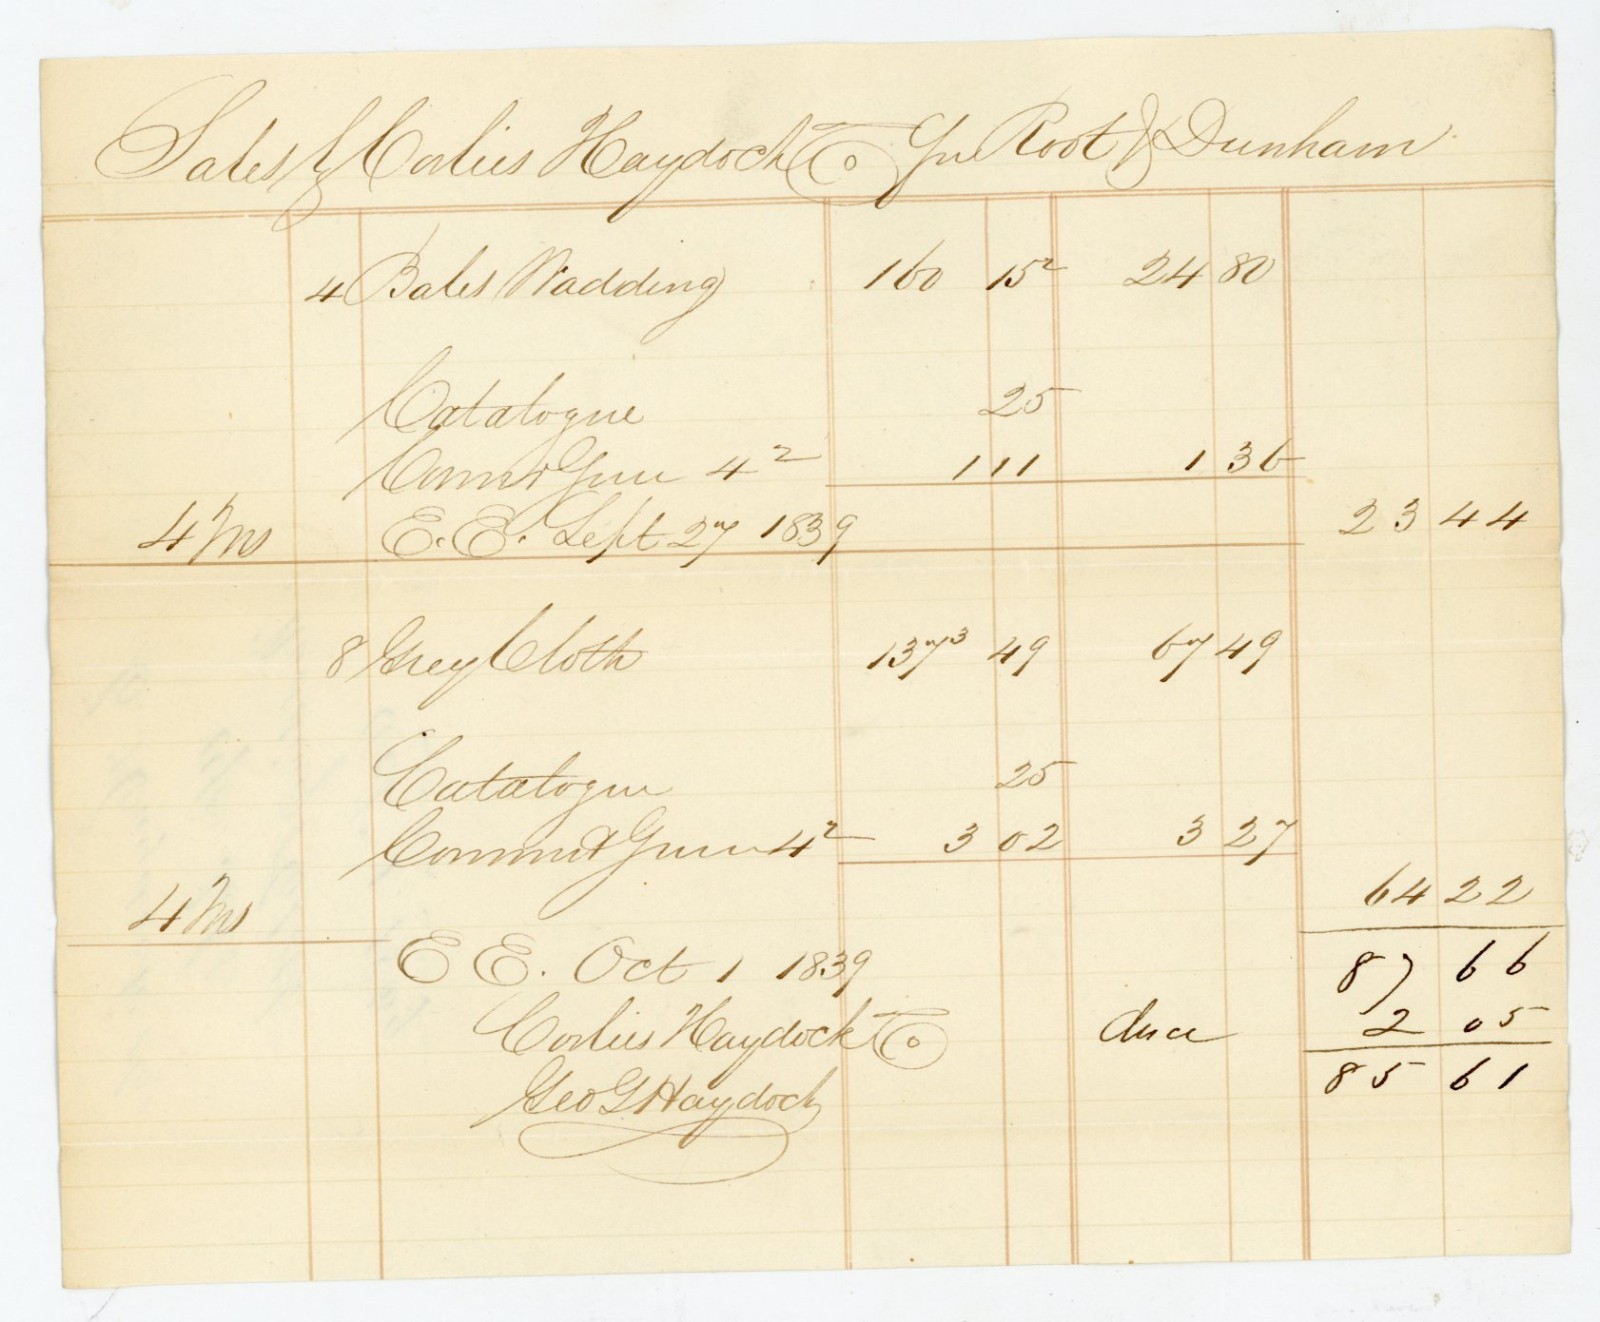 Sales by Corlies Haydock & Co for Root & Dunham
4 Bales Wadding 160 15² 24 80
Catalogue 25
Comm & Guar 4² 1 11 1 36
4 Ms E. E. Sept 27 1839 23 44
8 Grey Cloth 137³ 49 67 49
Catalogue 25
Comm & Guar 4² 3 02 3 27
4 Ms 64 22
E E. Oct 1 1839 87 66
Corlies Haydock & Co 2 05
Geo G Haydock 85 61